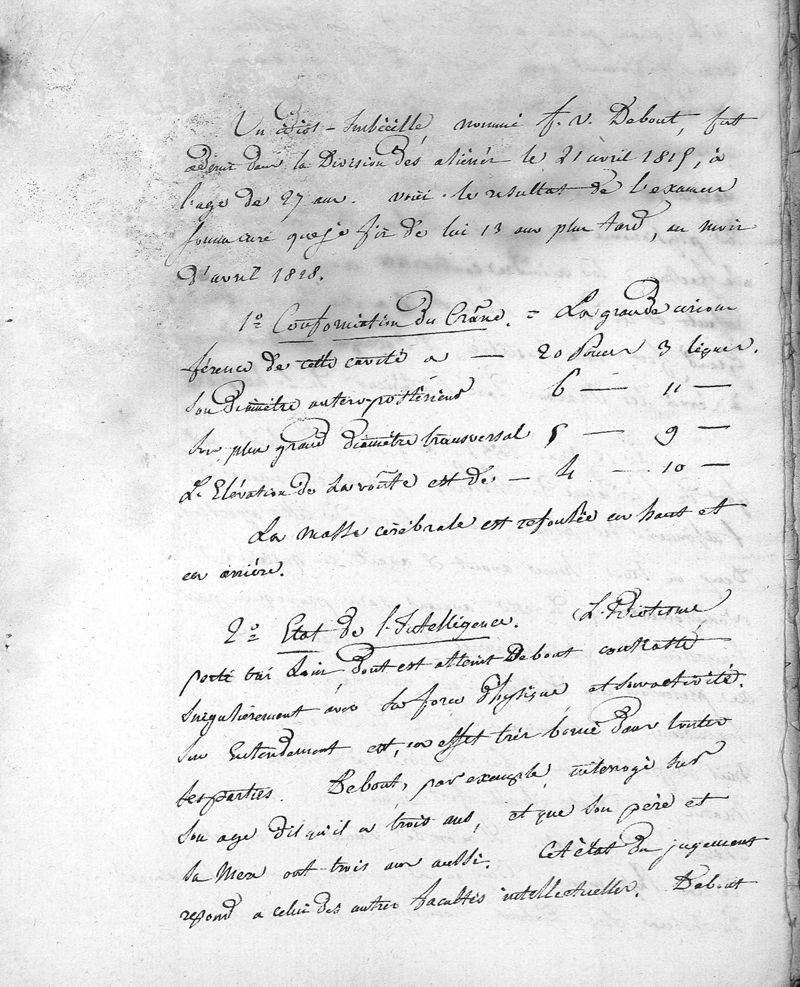 Un idiot-Imbécille nommé f. v. Debout, fut
admis dans la Division des aliénés le 21 avril 1815, à
l'age de 27 ans. voici le resultat de l'examen
sommaire que je fis de lui 13 ans plus tard, au mois
d'avril 1828.
1.º Conformation du Crâne. = La grande circon
férence de cette cavité a — 20 Pouces 3 lignes.
son Diamètre antero-postérieur 6 — 11 —
son plus grand diamètre transversal 5 — 9 —
L'Elévation de la voûte est de — 4 — 10 —
La masse cérébrale est refoulée en haut et
en arrière.
2.º Etat de l'Intelligence. L'Idiotisme
porté très loin dont est atteint Debout contraste
singulièrement avec sa force physique et son activité.
son Entendement est, en effet très borné dans toutes
ses parties. Debout, par exemple, interrogé sur
son age dit qu'il a trois ans, et que son père et
sa Mere ont trois ans aussi. Cet état du jugement
repond a celui des autres facultés intellectuelles. Debout